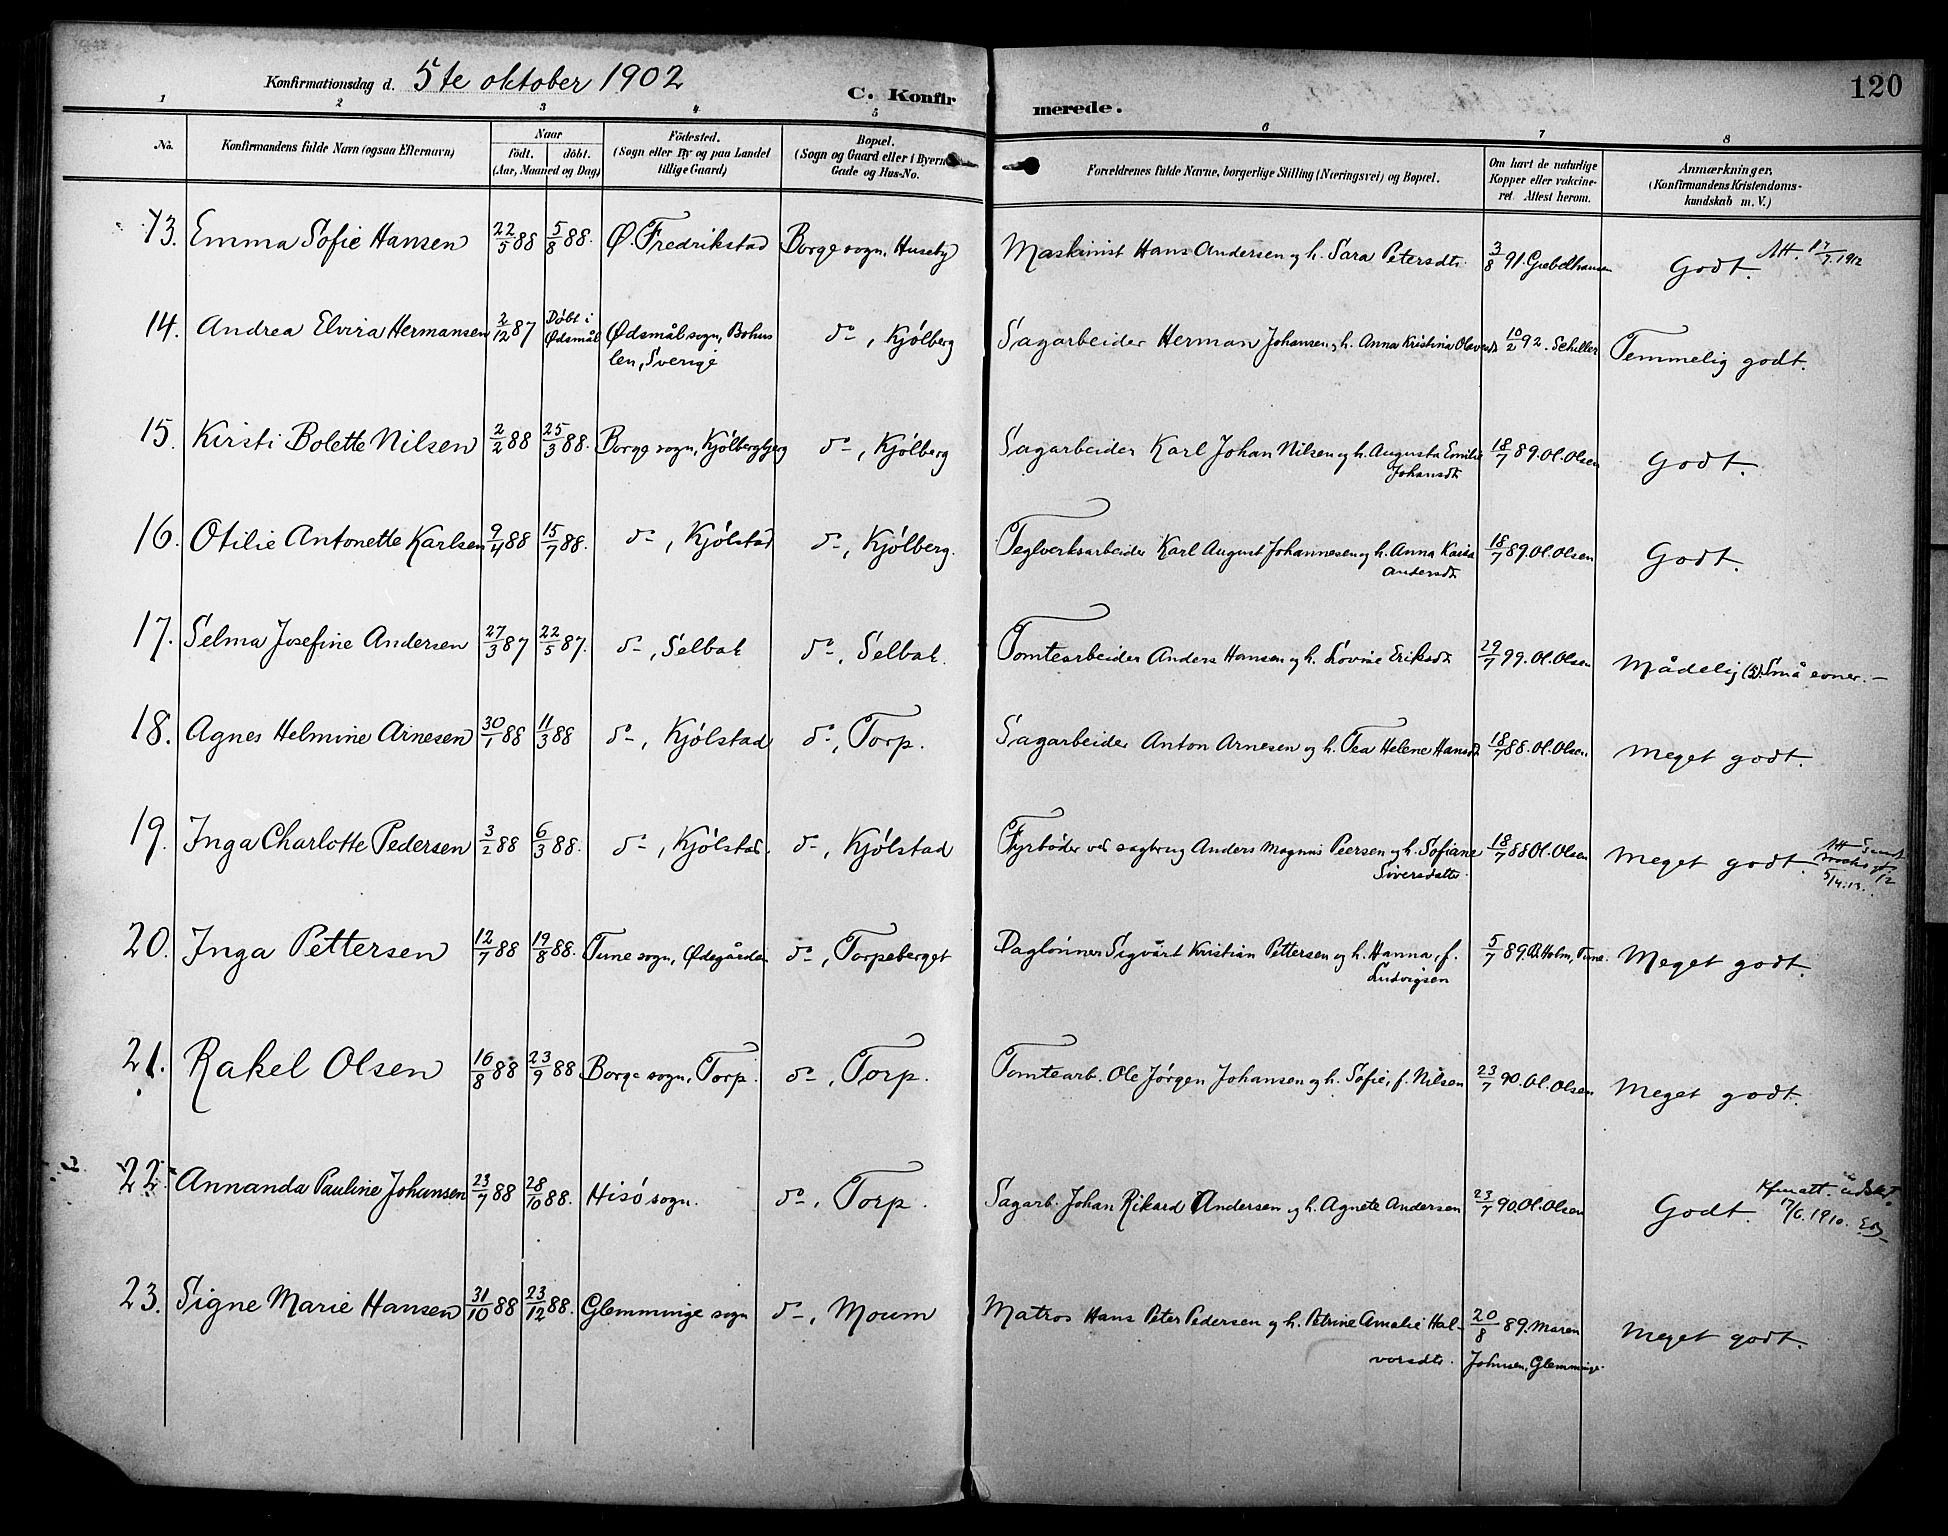 Konfirmationsdag d. 5te oktober 1902
C. Konfirmerede.
120
1 2 3 4 5 6 7 8
No. Konfirmandens fulde Navn (ogsaa Efternavn) Naar födt. döbt. (Aar, Maaned og Dag) Födested. (Sogn eller By og paa Landet tillige Gaard) Bopæl. (Sogn og Gaard eller i Byerne Gade og Hus-No. Forældrenes fulde Navne, borgerlige Stilling (Næringsvei) og Bopæl. Om havt de naturlige Kopper eller vakcineret. Attest herom. Anmærkninger, (Konfirmandens Kristendomskundskab m. V.)
13. Emma Sofie Hansen 22/5 88 5/8 88. Ø. Fredrikstad Borge sogn, Huseby Maskinist Hans Andersen og h. Sara Petersdtr. 3/8 91. Græbelhausen Godt. Att. 17/7. 1912
14. Andrea Elvira Hermansen 2/12 87 Döbt i Ødsmål Ødsmål sogn, Bohus
len, Sverige do, Kjölberg Sagarbeider Herman Johansen og h. Anna Kristina Olavesdtr 10/2 92. Schiller Temmelig godt.
15. Kirsti Bolette Nilsen 2/2 88 25/3 88. Borge sogn, Kjölbergbjerg do, Kjölberg Sagarbeider Karl Johan Nilsen og h. Augusta Emilie
Johansdtr 18/7 89. Ol. Olsen Godt.
16. Otilie Antonette Karlsen 9/4 88 15/7 88. do, Kjölstad do, Kjölberg. Teglverksarbeider Karl August Johannesen og h. Anna Kaisa
Andersdtr 18/7 89. Ol. Olsen Godt.
17. Selma Josefine Andersen 27/3 87 22/5 87. do, Selbak do, Selbak. Tomtearbeider Anders Hansen og h. Lovise Eriksdtr 29/7 99. Ol. Olsen Mådelig (5). Små evner. –
18. Agnes Helmine Arnesen 30/1 88 11/3 88 do, Kjölstad do, Torp. Sagarbeider Anton Arnesen og h. Tea Helene Hansdtr 18/7 88. Ol. Olsen Meget godt.
19. Inga Charlotte Pedersen 3/2 88 6/3 88. do, Kjölstad. do, Kjölstad Fyrböder ved sagbrug Anders Magnus Peersen og h. Sofiane
Siversdatter 18/7 88 Ol. Olsen Meget godt. Att
5/4. 13.
20. Inga Pettersen 12/7 88 19/8 88. Tune sogn, Ødegården do, Torpeberget Daglönner Sigvårt Kristian Pettersen og h. Hanna, f.
Ludvigsen 5/7 89. B. Holm, Tune. Meget godt.
21. Rakel Olsen 16/8 88 23/9 88 Borge sogn, Torp. do, Torp. Tomtearb. Ole Jörgen Johansen og h. Sofie, f. Nilsen 23/7 90. Ol. Olsen Meget godt.
22. Annanda Pauline Johansen 23/7 88 28/10 88. Hisö sogn. do, Torp. Sagarb. Johan Rikard Andersen og h. Agnete Andersen 23/7 90. Ol. Olsen Godt. Kfm att. udst.
17/6. 1910.
23. Signe Marie Hansen 31/10 88 23/12 88. Glemminge sogn do, Moum Matros Hans Peter Pedersen og h. Petrine Amalie Hal-
vorsdtr. 20/8 89. Maren
Johnsen, Glemminge. Meget godt.